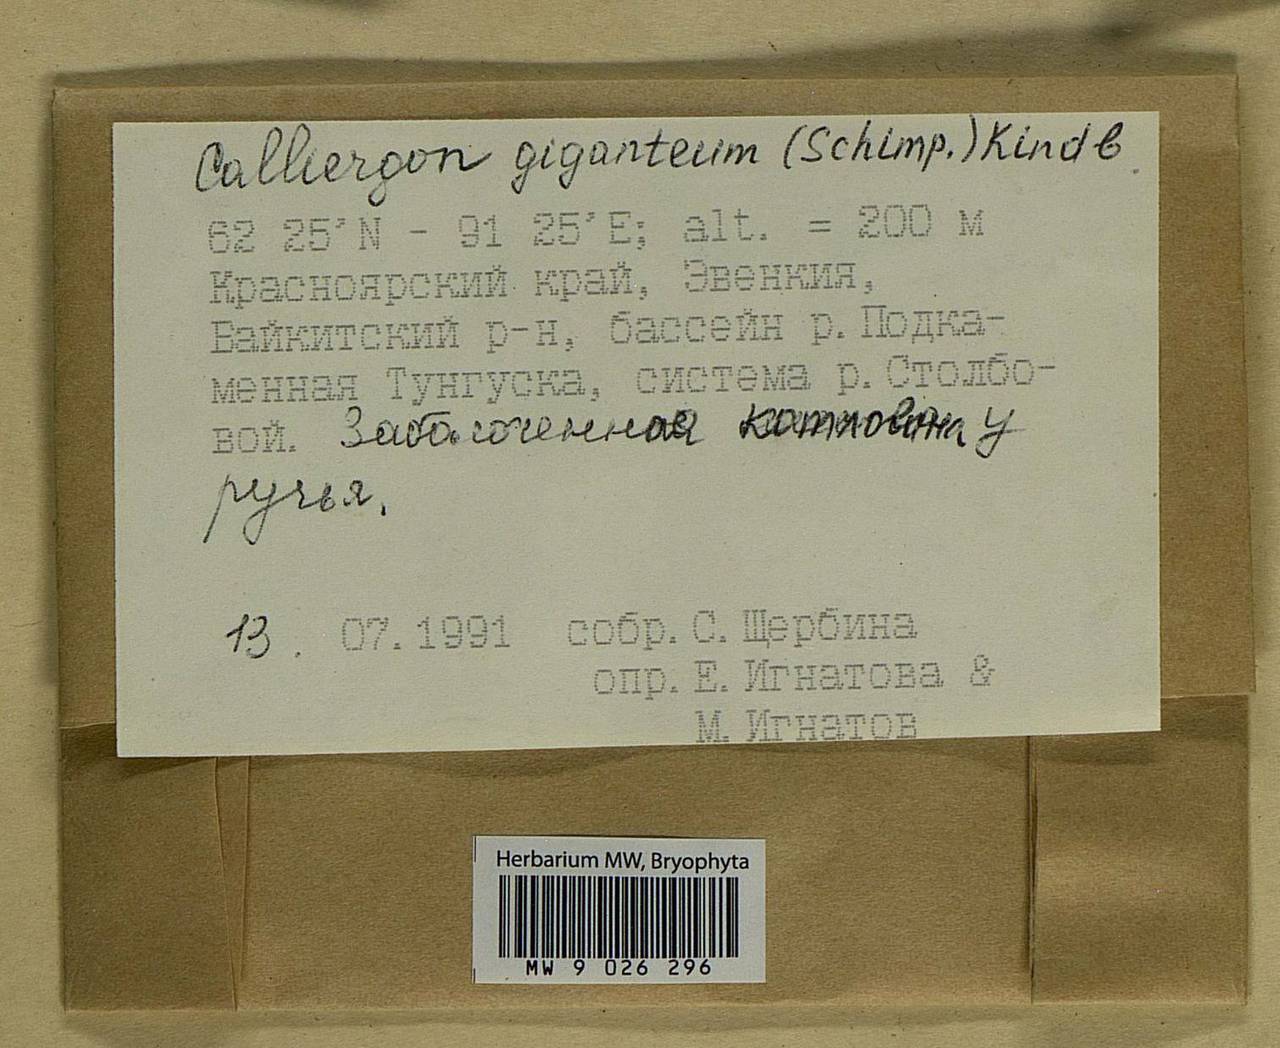 Calliergon giganteum (Schimp.) Kindb.
62 25' N - 91 25' E; alt. = 200 м
Красноярский край, Эвенкия,
Байкитский р-н, бассейн р. Подка-
менная Тунгуска, система р. Столбо-
вой. Заболоченная котловина у
ручья.
13. 07.1991 собр. С. Щербина
опр. Е. Игнатова &
М. Игнатов
Herbarium MW, Bryophyta
MW 9 026 296